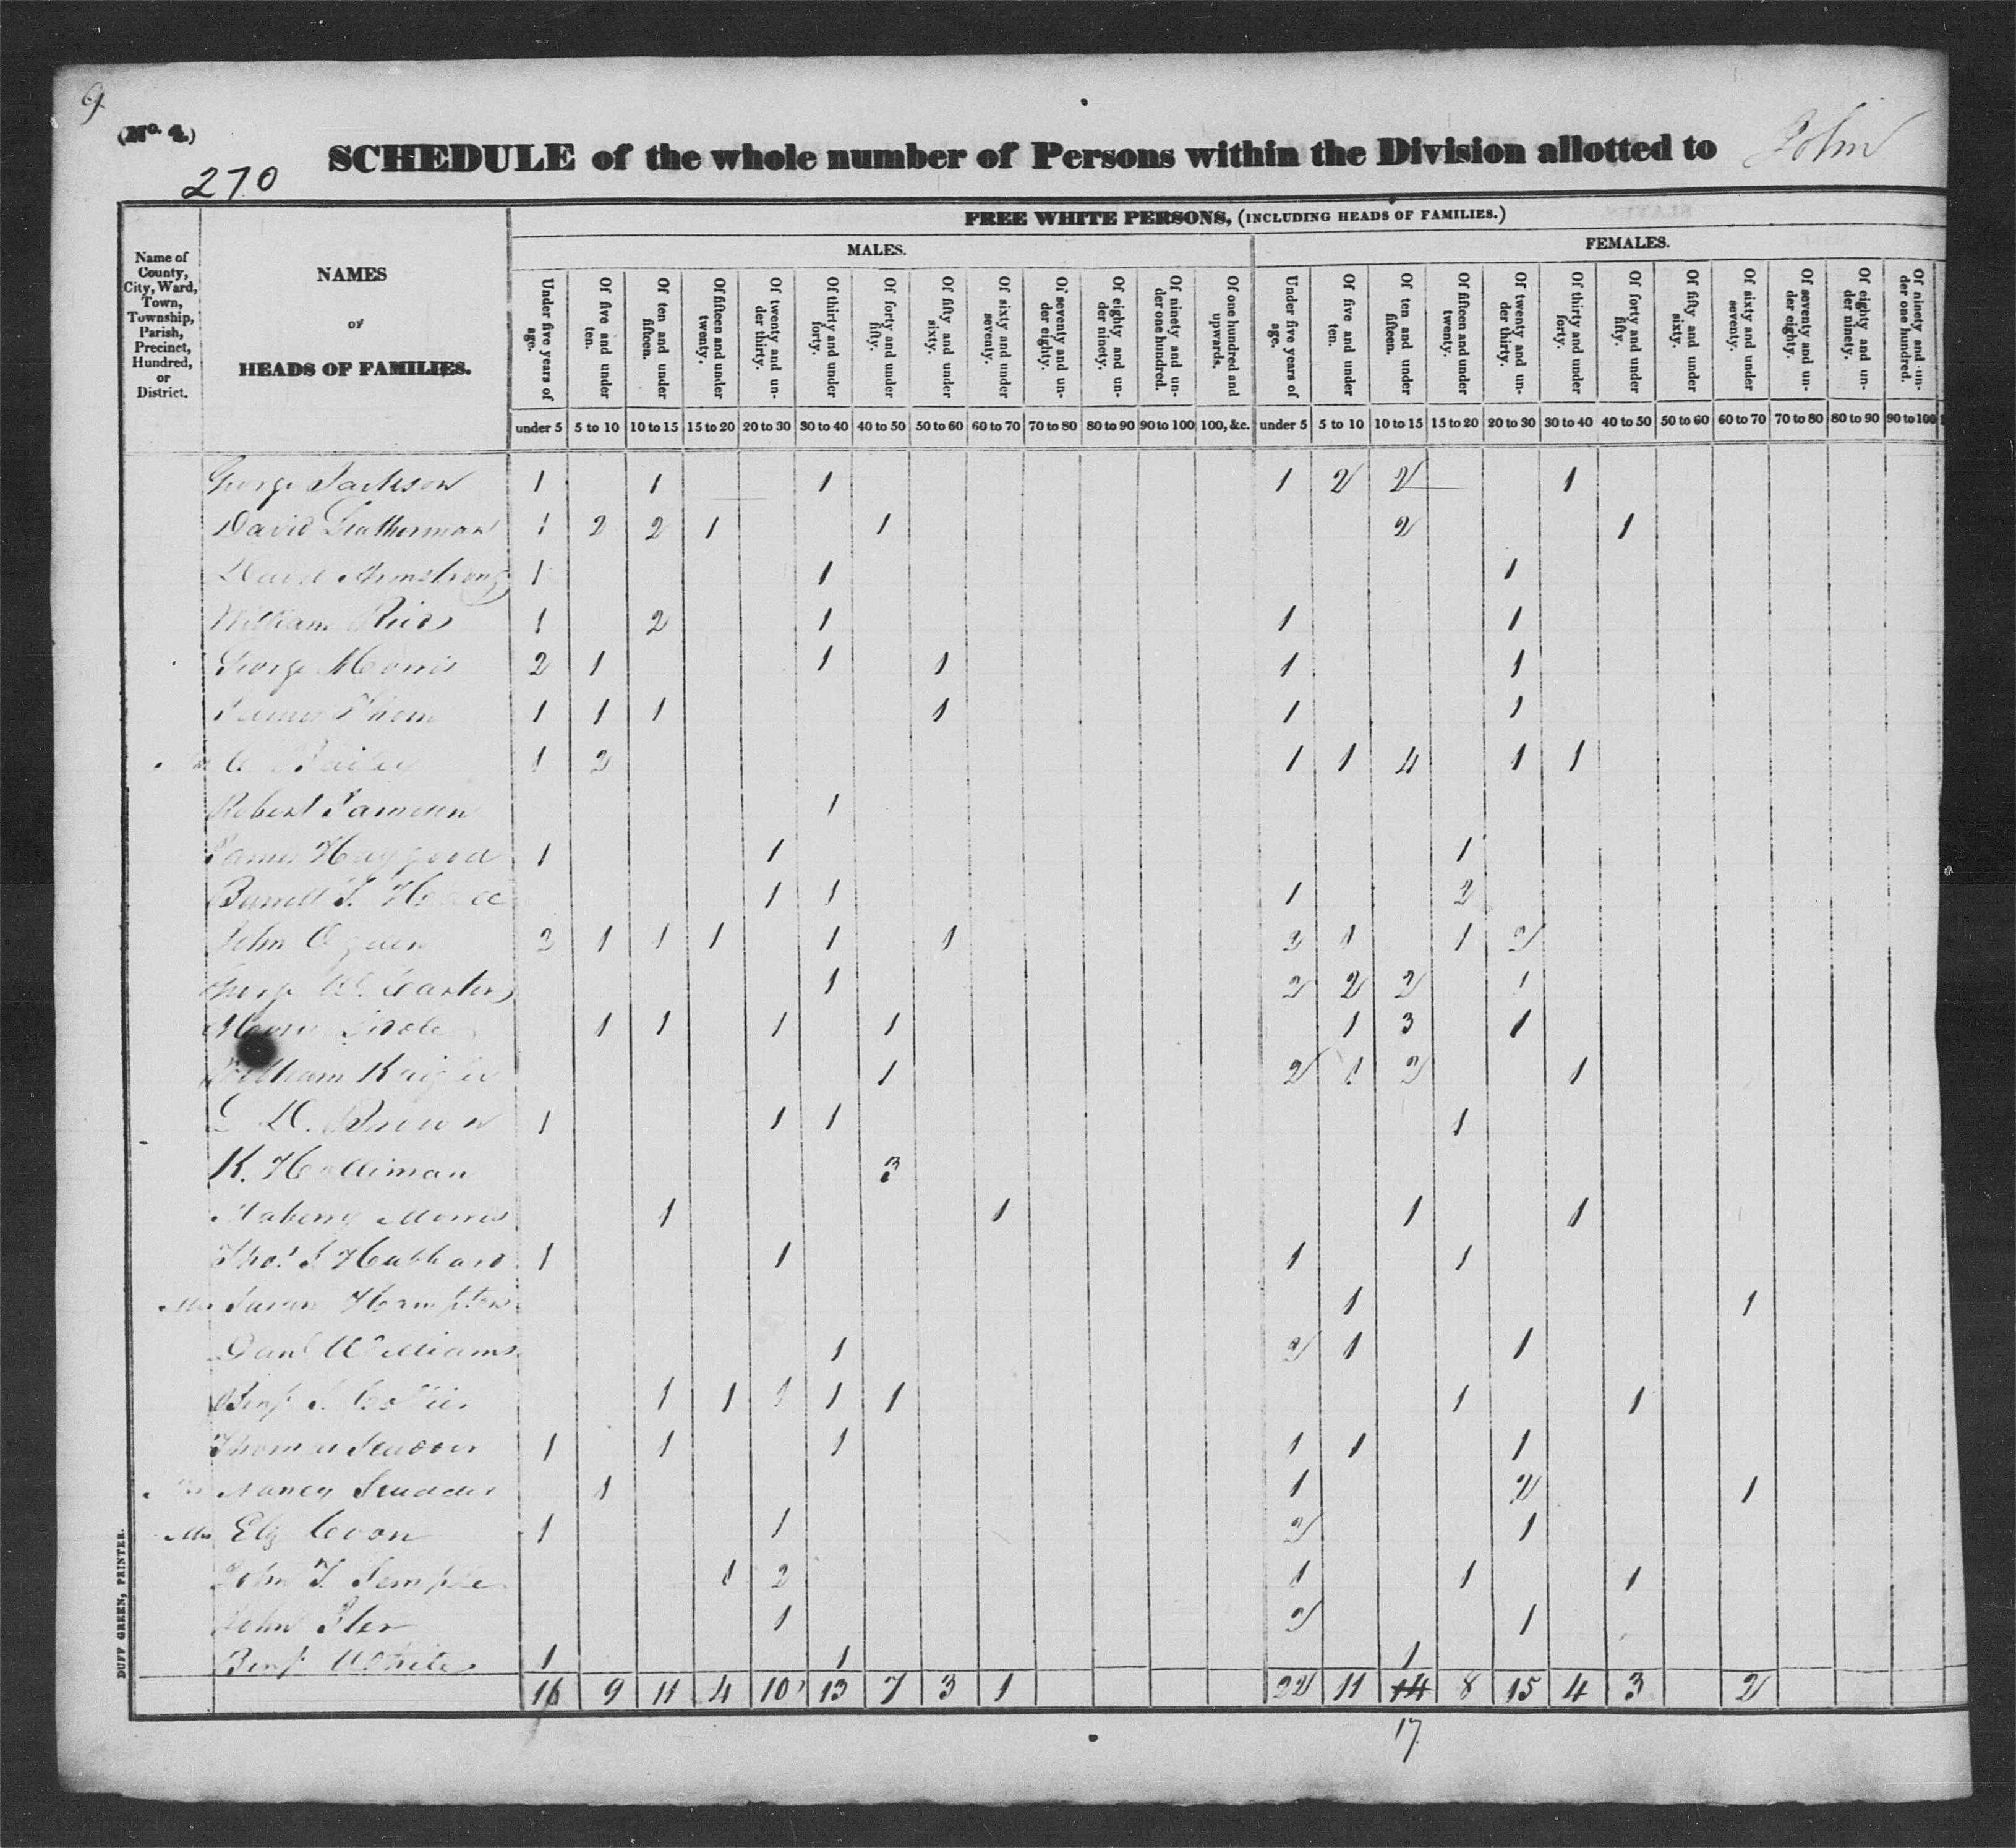 9
(No. 4.)
270
SCHEDULE of the whole number of Persons within the Division allotted to John
FREE WHITE PERSONS, (INCLUDING HEADS OF FAMILIES.)
MALES. FEMALES.
Name of County, City, Ward, Town, Township, Parish, Precinct, Hundred, or District.
NAMES
OF
HEADS OF FAMILIES.
Under five years of age. Of five and under ten. Of ten and under fifteen. Of fifteen and under twenty. Of twenty and under thirty. Of thirty and under forty. Of forty and under fifty. Of fifty and under sixty. Of sixty and under seventy. Of seventy and under eighty. Of eighty and under ninety. Of ninety and under one hundred. Of one hundred and upwards. Under five years of age. Of five and under ten. Of ten and under fifteen. Of fifteen and under twenty. Of twenty and under thirty. Of thirty and under forty. Of forty and under fifty. Of fifty and under sixty. Of sixty and under seventy. Of seventy and under eighty. Of eighty and under ninety. Of ninety and under one hundred.
under 5 5 to 10 10 to 15 15 to 20 20 to 30 30 to 40 40 to 50 50 to 60 60 to 70 70 to 80 80 to 90 90 to 100 100, &c. under 5 5 to 10 10 to 15 15 to 20 20 to 30 30 to 40 40 to 50 50 to 60 60 to 70 70 to 80 80 to 90 90 to 100
George Jackson 1 1 1 1 2 2 1
David Leatherman 1 2 2 1 1 2 1
David Armstrong 1 1 1
William 1 2 1 1 1
George Morris 2 1 1 1 1 1
James 1 1 1 1 1 1
Bailey 1 2 1 1 4 1 1
Robert Jameson 1
James Haygood 1 1 1
Burrell 1 1 1 2
John Ogden 2 1 1 1 1 1 2 1 1 2
George W. 1 2 2 2 1
1 1 1 1 1 3 1
William 1 2 1 2 1
D. Brown 1 1 1 1
K. Holliman 3
Morris 1 1 1 1
Thos. J Hubbard 1 1 1 1
Mrs Susan Hampton 1 1
Danl Williams 1 2 1 1
Benj. 1 1 1 1 1 1 1
Thomas 1 1 1 1 1 1
Nancy Scudder 1 1 2 1
Mrs Elz Coon 1 1 2 1
John T. Semple 1 2 1 1 1
John Iler 1 2 1
Benj. White 1 1 1
16 9 11 4 10 13 7 3 1 22 11 14 8 15 4 3 2
17
DUFF GREEN, PRINTER.